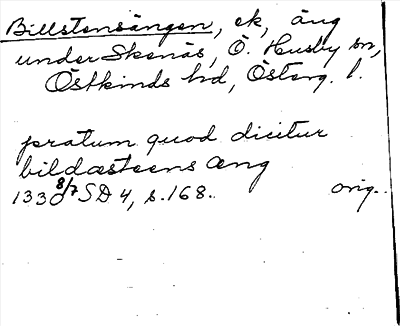 Billstensängen, ek, äng
under Skenäs, Ö. Husby sn,
Östkinds hd, Österg. l.
pratum quod dicitur
bildæsteens æng
1330 8/7 SD 4, s. 168. orig.